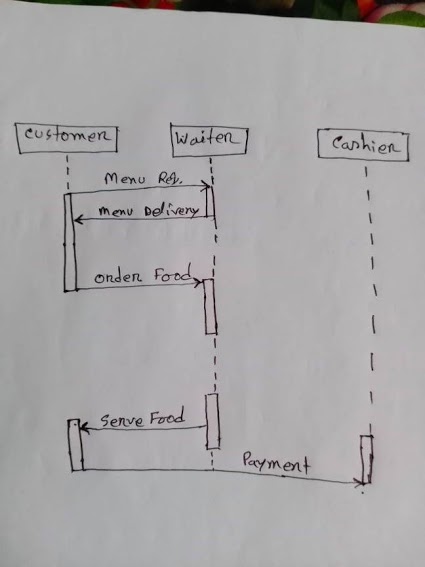 Customer
Waiter
Cashier
Menu Req.
Menu Delivery
Order Food
Serve Food
Payment